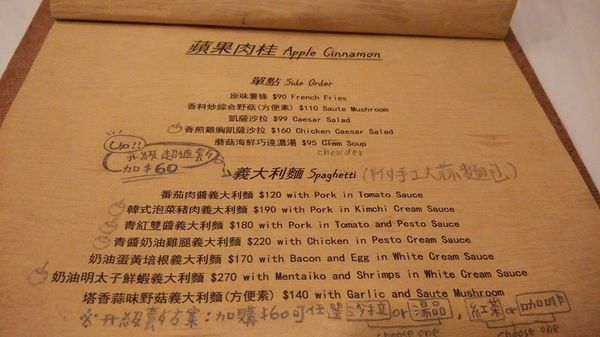 蘋果肉桂 Apple Cinnamon
單點 Side Order
原味薯條 $90 French Fries
香料炒綜合野菇(方便素) $110 Saute Mushroom
凱薩沙拉 $99 Caesar Salad
香煎雞胸凱薩沙拉 $160 Chicken Caesar Salad
蘑菇海鮮巧達濃湯 $95 Clam Soup
chowder
Up!!
升級超值套
加$60
義大利麵 Spaghetti (附手工大蒜麵包)
番茄肉醬義大利麵 $120 with Pork in Tomato Sauce
韓式泡菜豬肉義大利麵 $190 with Pork in Kimchi Cream Sauce
青紅雙醬義大利麵 $180 with Pork in Tomato and Pesto Sauce
青醬奶油雞腿義大利麵 $220 with Chicken in Pesto Cream Sauce
奶油蛋黃培根義大利麵 $170 with Bacon and Egg in White Cream Sauce
奶油明太子鮮蝦義大利麵 $270 with Mentaiko and Shrimps in White Cream Sauce
塔香蒜味野菇義大利麵(方便素) $140 with Garlic and Saute Mushroom
※升級套餐方案:加購$60可任選 沙拉 or 湯品, 紅茶 or 咖啡
choose one choose one